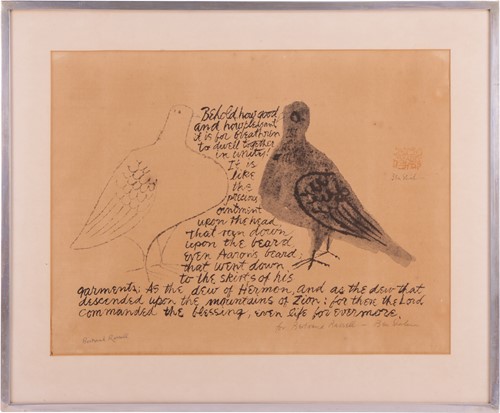 Behold how good
and how pleasant
it is for breathren
to dwell together
in unity!
It is
like
the
precious
ointment
upon the head
that ran down
upon the beard
even Aaron's beard
that went down
to the skirts of his
garments; As the dew of Hermon, and as the dew that
descended upon the mountains of Zion: for there the Lord
commanded the blessing, even life for evermore.
Ben Shahn
for Bertrand Russell – Ben Shahn
Bertrand Russell